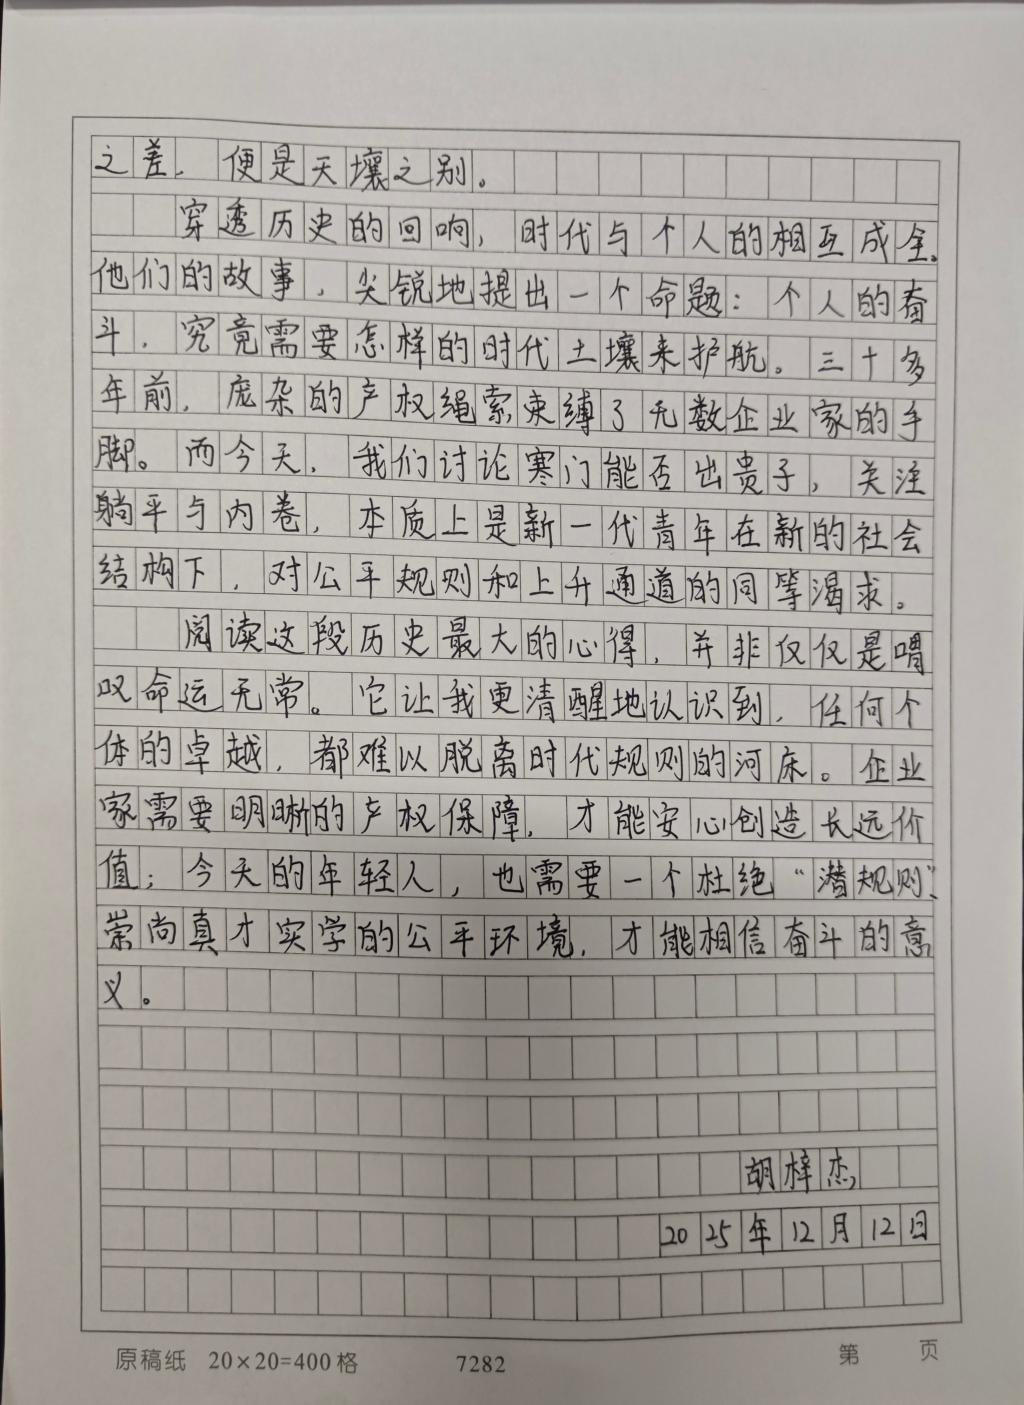 之差，便是天壤之别。
穿透历史的回响，时代与个人的相互成全。
他们的故事，尖锐地提出一个命题：个人的奋
斗，究竟需要怎样的时代土壤来护航。三十多
年前，庞杂的产权绳索束缚了无数企业家的手
脚。而今天，我们讨论寒门能否出贵子，关注
躺平与内卷，本质上是新一代青年在新的社会
结构下，对公平规则和上升通道的同等渴求。
阅读这段历史最大的心得，并非仅仅是喟
叹命运无常。它让我更清醒地认识到，任何个
体的卓越，都难以脱离时代规则的河床。企业
家需要明晰的产权保障，才能安心创造长远价
值；今天的年轻人，也需要一个杜绝“潜规则”、
崇尚真才实学的公平环境，才能相信奋斗的意
义。
胡梓杰
2025年12月12日
原稿纸 20×20=400格 7282 第 页